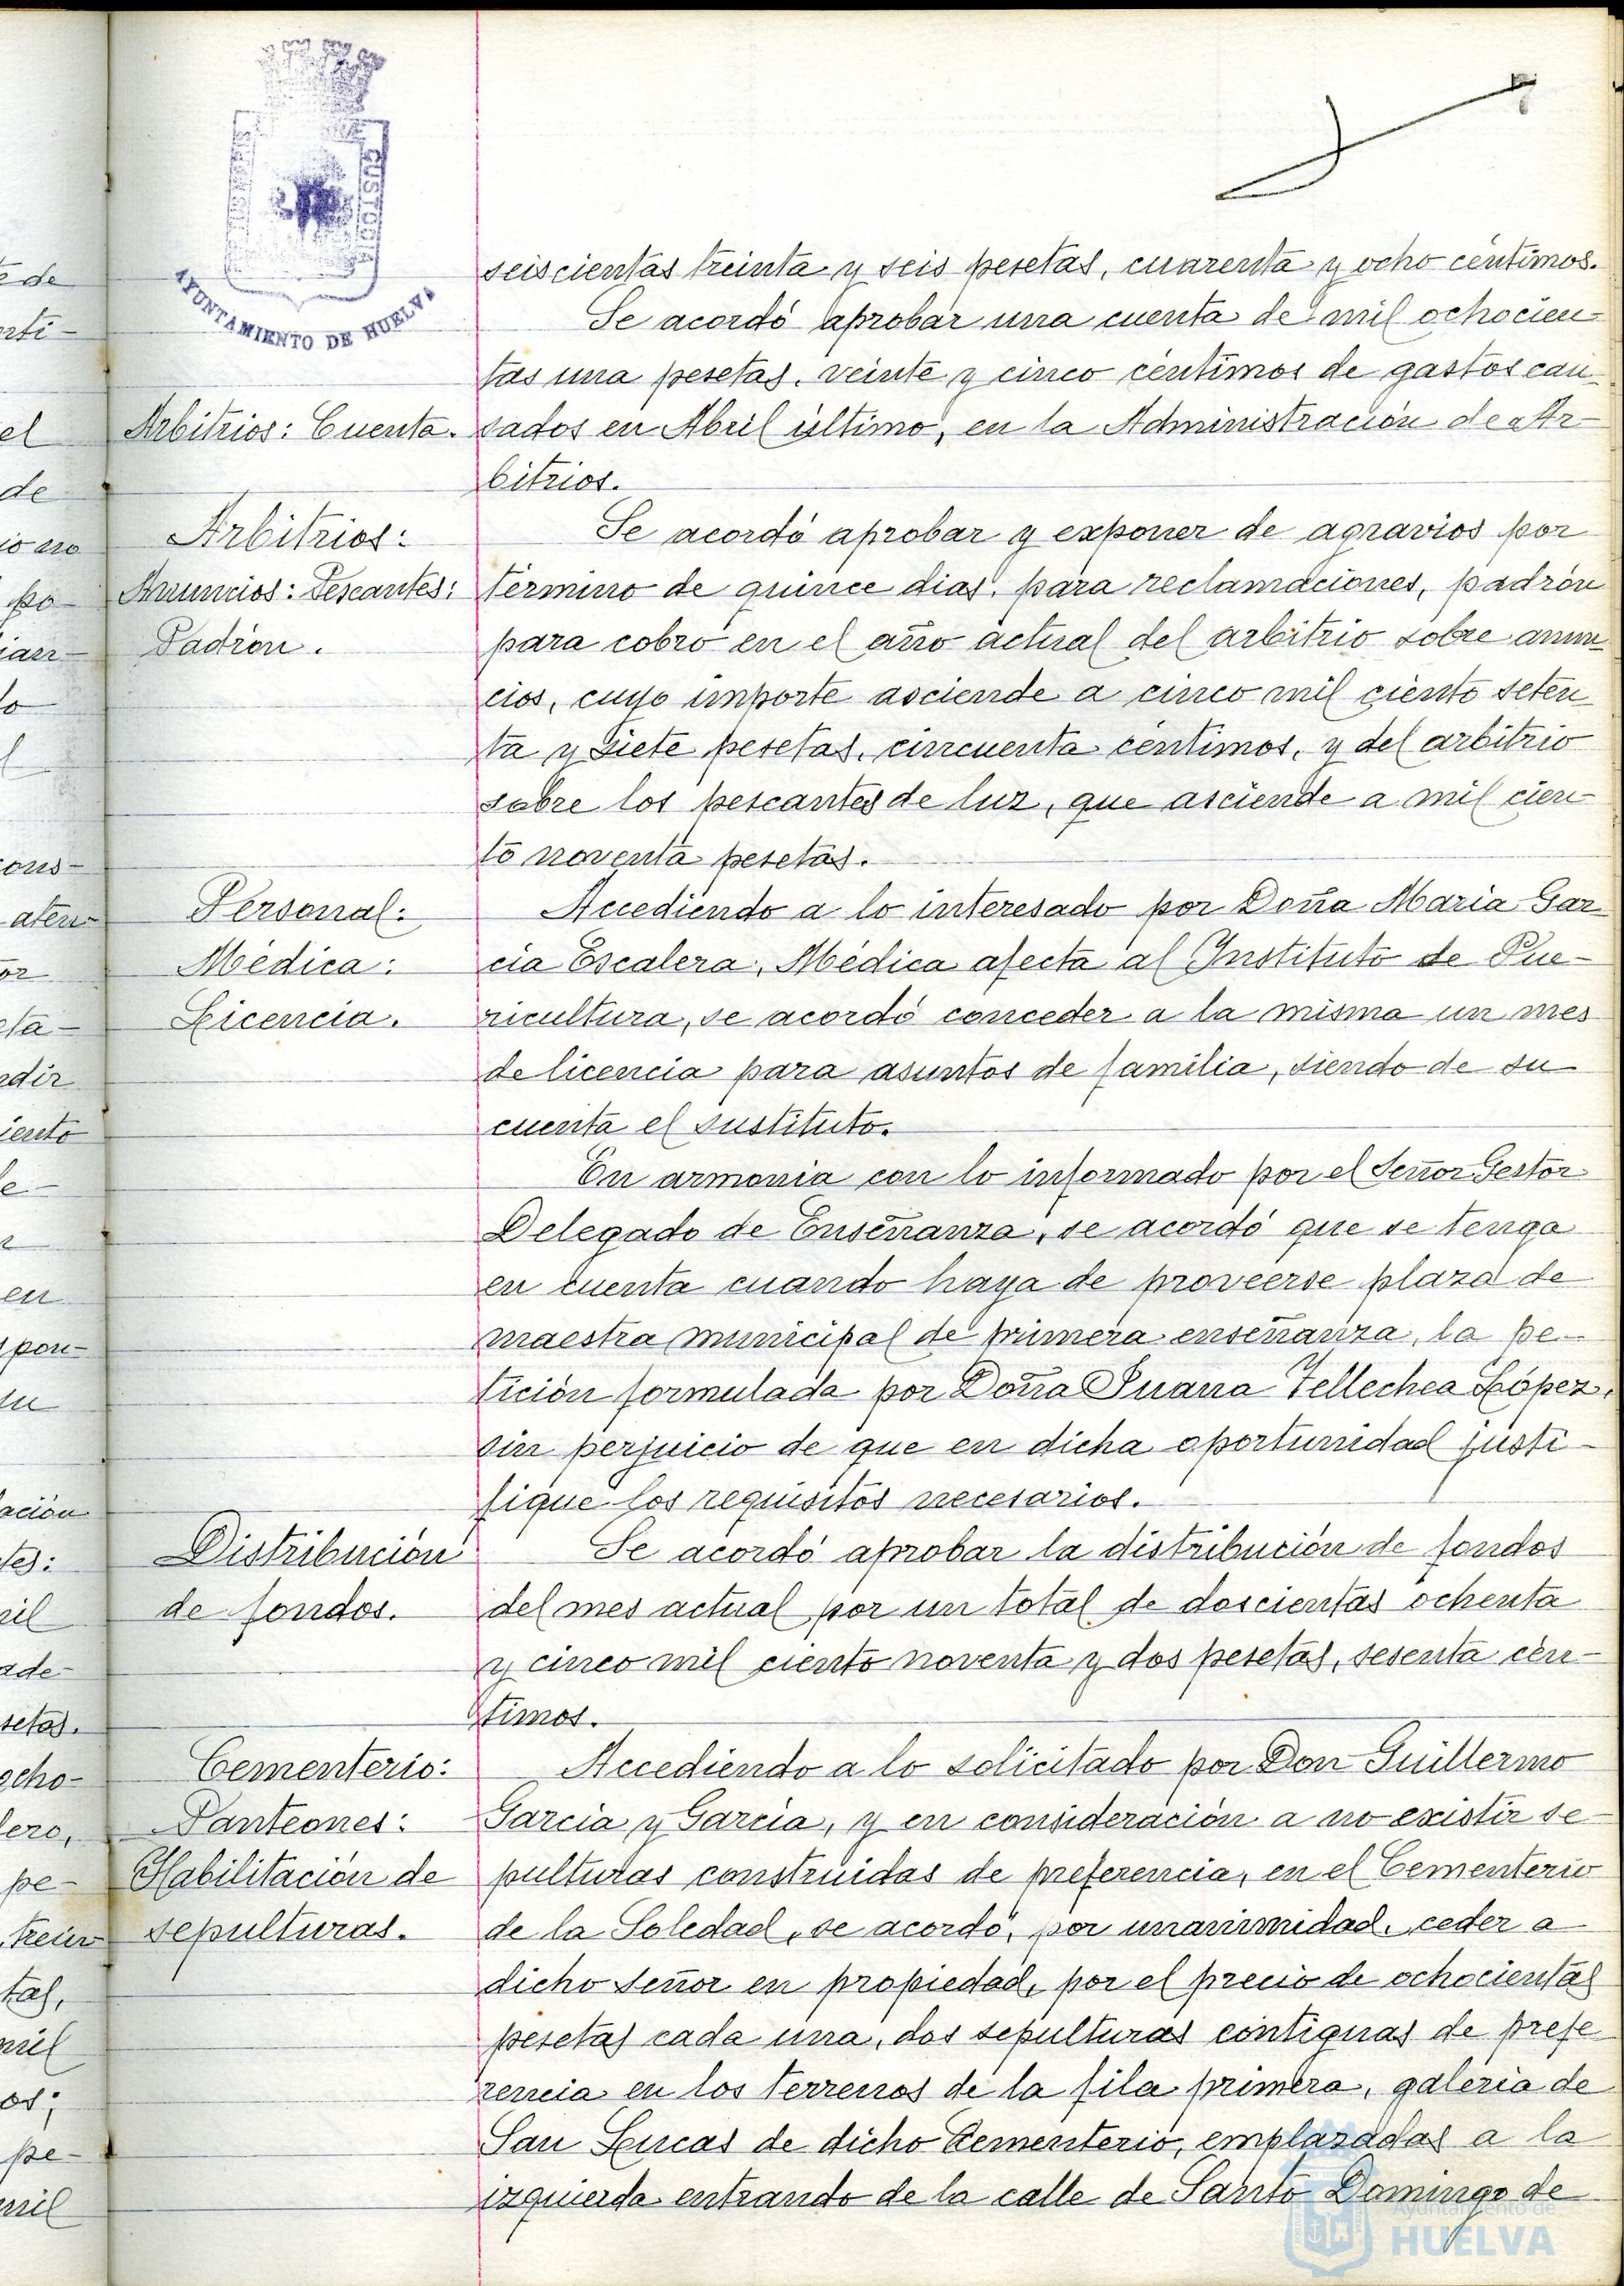 CUSTODIA
AYUNTAMIENTO DE HUELVA
seiscientas treinta y seis pesetas, cuarenta y ocho céntimos.
Se acordó aprobar una cuenta de mil ochocien-
tas una pesetas, veinte y cinco céntimos de gastos cau-
Arbitrios: Cuenta.
sados en Abril último, en la Administración de Ar-
bitrios.
Arbitrios:
Se acordó aprobar y exponer de agravios por
Anuncios: Pescantes:
término de quince dias, para reclamaciones, padrón
Padrón.
para cobro en el año actual del arbitrio sobre anun-
cios, cuyo importe asciende a cinco mil ciento seten
ta y siete pesetas, cincuenta céntimos, y del arbitrio
sobre los pescantes de luz, que asciende a mil cien-
to noventa pesetas.
Personal:
Accediendo a lo interesado por Doña Maria Gar
Médica:
cia Escalera, Médica afecta al Instituto de Pue-
Licencia.
ricultura, se acordó conceder a la misma un mes
de licencia para asuntos de familia, siendo de su
cuenta el sustituto.
En armonia con lo informado por el Señor Gestor
Delegado de Enseñanza, se acordó que se tenga
en cuenta cuando haya de proveerse plaza de
maestra municipal de primera enseñanza, la pe-
tición formulada por Doña Juana Tellechea López,
sin perjuicio de que en dicha oportunidad justi-
fique los requisitos necesarios.
Distribución
Se acordó aprobar la distribución de fondos
de fondos.
del mes actual por un total de doscientas ochenta
y cinco mil ciento noventa y dos pesetas, sesenta cén-
timos.
Cementerio:
Accediendo a lo solicitado por Don Guillermo
Panteones:
Garcia y Garcia, y en consideración a no existir se-
Habilitación de
pulturas construidas de preferencia, en el Cementerio
sepulturas.
de la Soledad, se acordó, por unanimidad, ceder a
dicho señor en propiedad, por el precio de ochocientas
pesetas cada una, dos sepulturas contiguas de prefe
rencia en los terrenos de la fila primera, galeria de
San Lucas de dicho Cementerio, emplazadas a la
izquierda entrando de la calle de Santo Domingo de
Ayuntamiento de
HUELVA